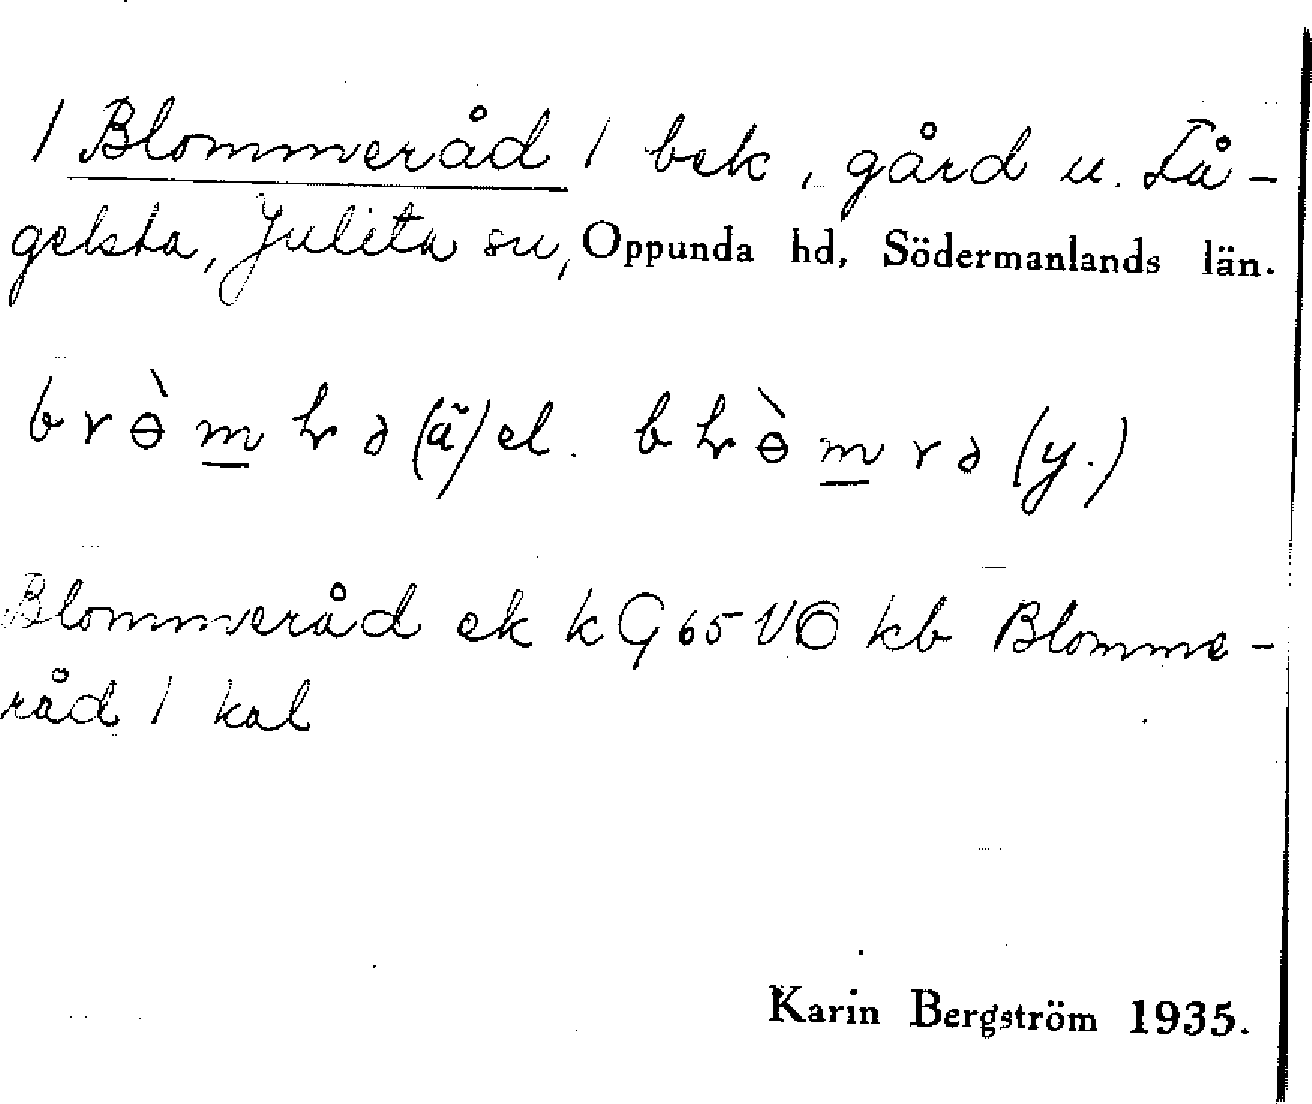 / Blommeråd / bek, gård u. Få-
gelsta, Julita sn, Oppunda hd, Södermanlands län.
(ä) el. (y.)
Blommeråd ek k G 65 VO kb Blomme-
råd / kal
Karin Bergström 1935.